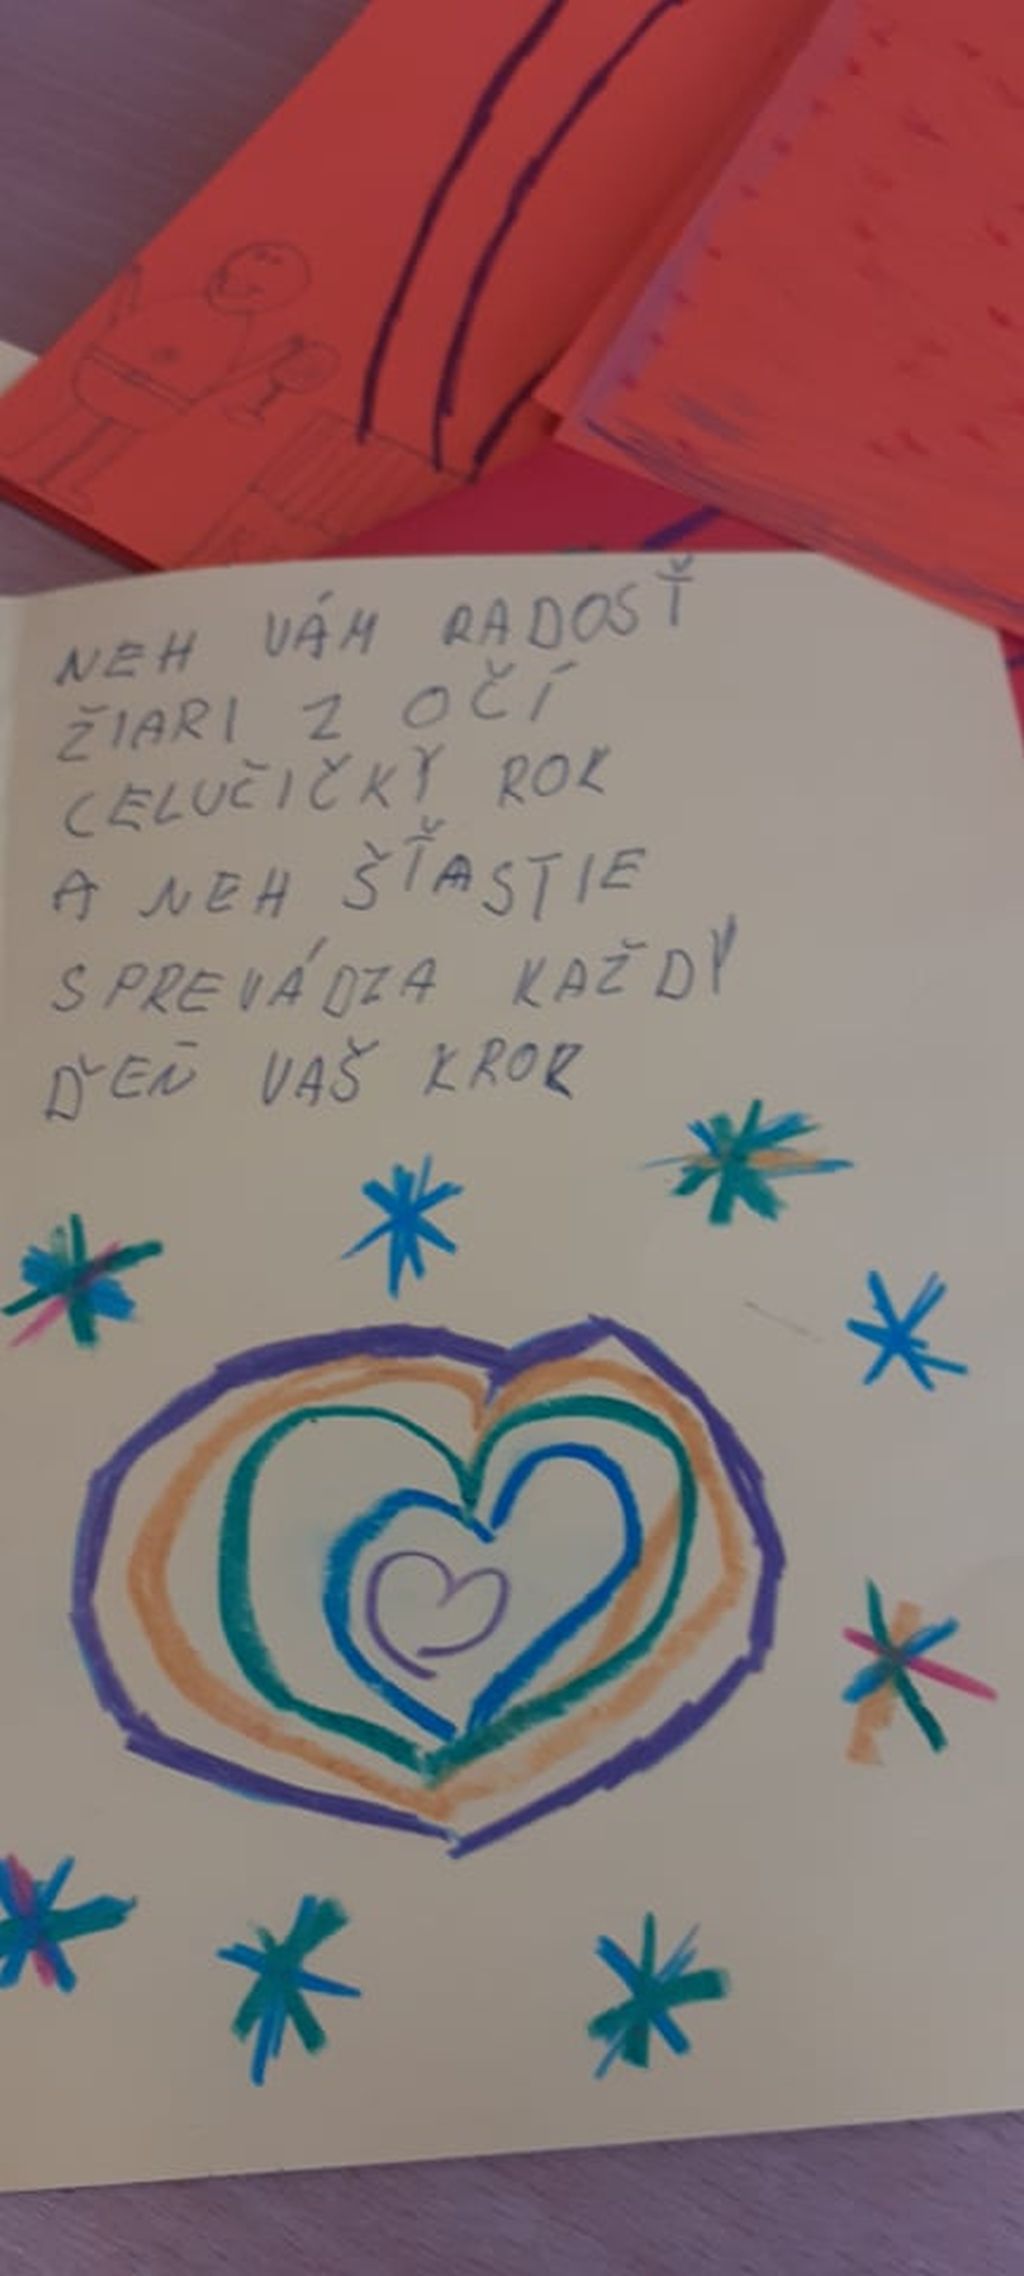 NEH VÁM RADOSŤ
ŽIARI Z OČÍ
CELUČIČKÝ ROK
A NEH ŠŤASTIE
SPREVÁDZA KAŽDÝ
ĎEŇ VAŠ KROK